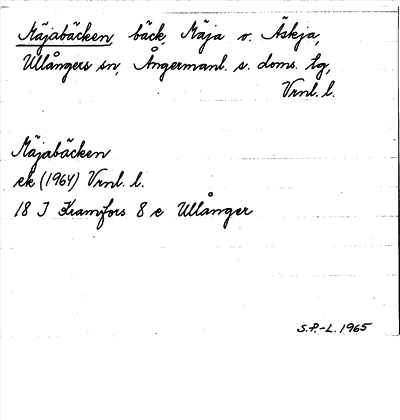 Mäjabäcken bäck, Mäja o. Äskja,
Ullångers sn, Ångermanl. s. doms. lg,
Vrnl. l.
Mäjabäcken
ek (1964) Vrnl. l.
18 J Kramfors 8 e Ullånger
S.P.-L. 1965